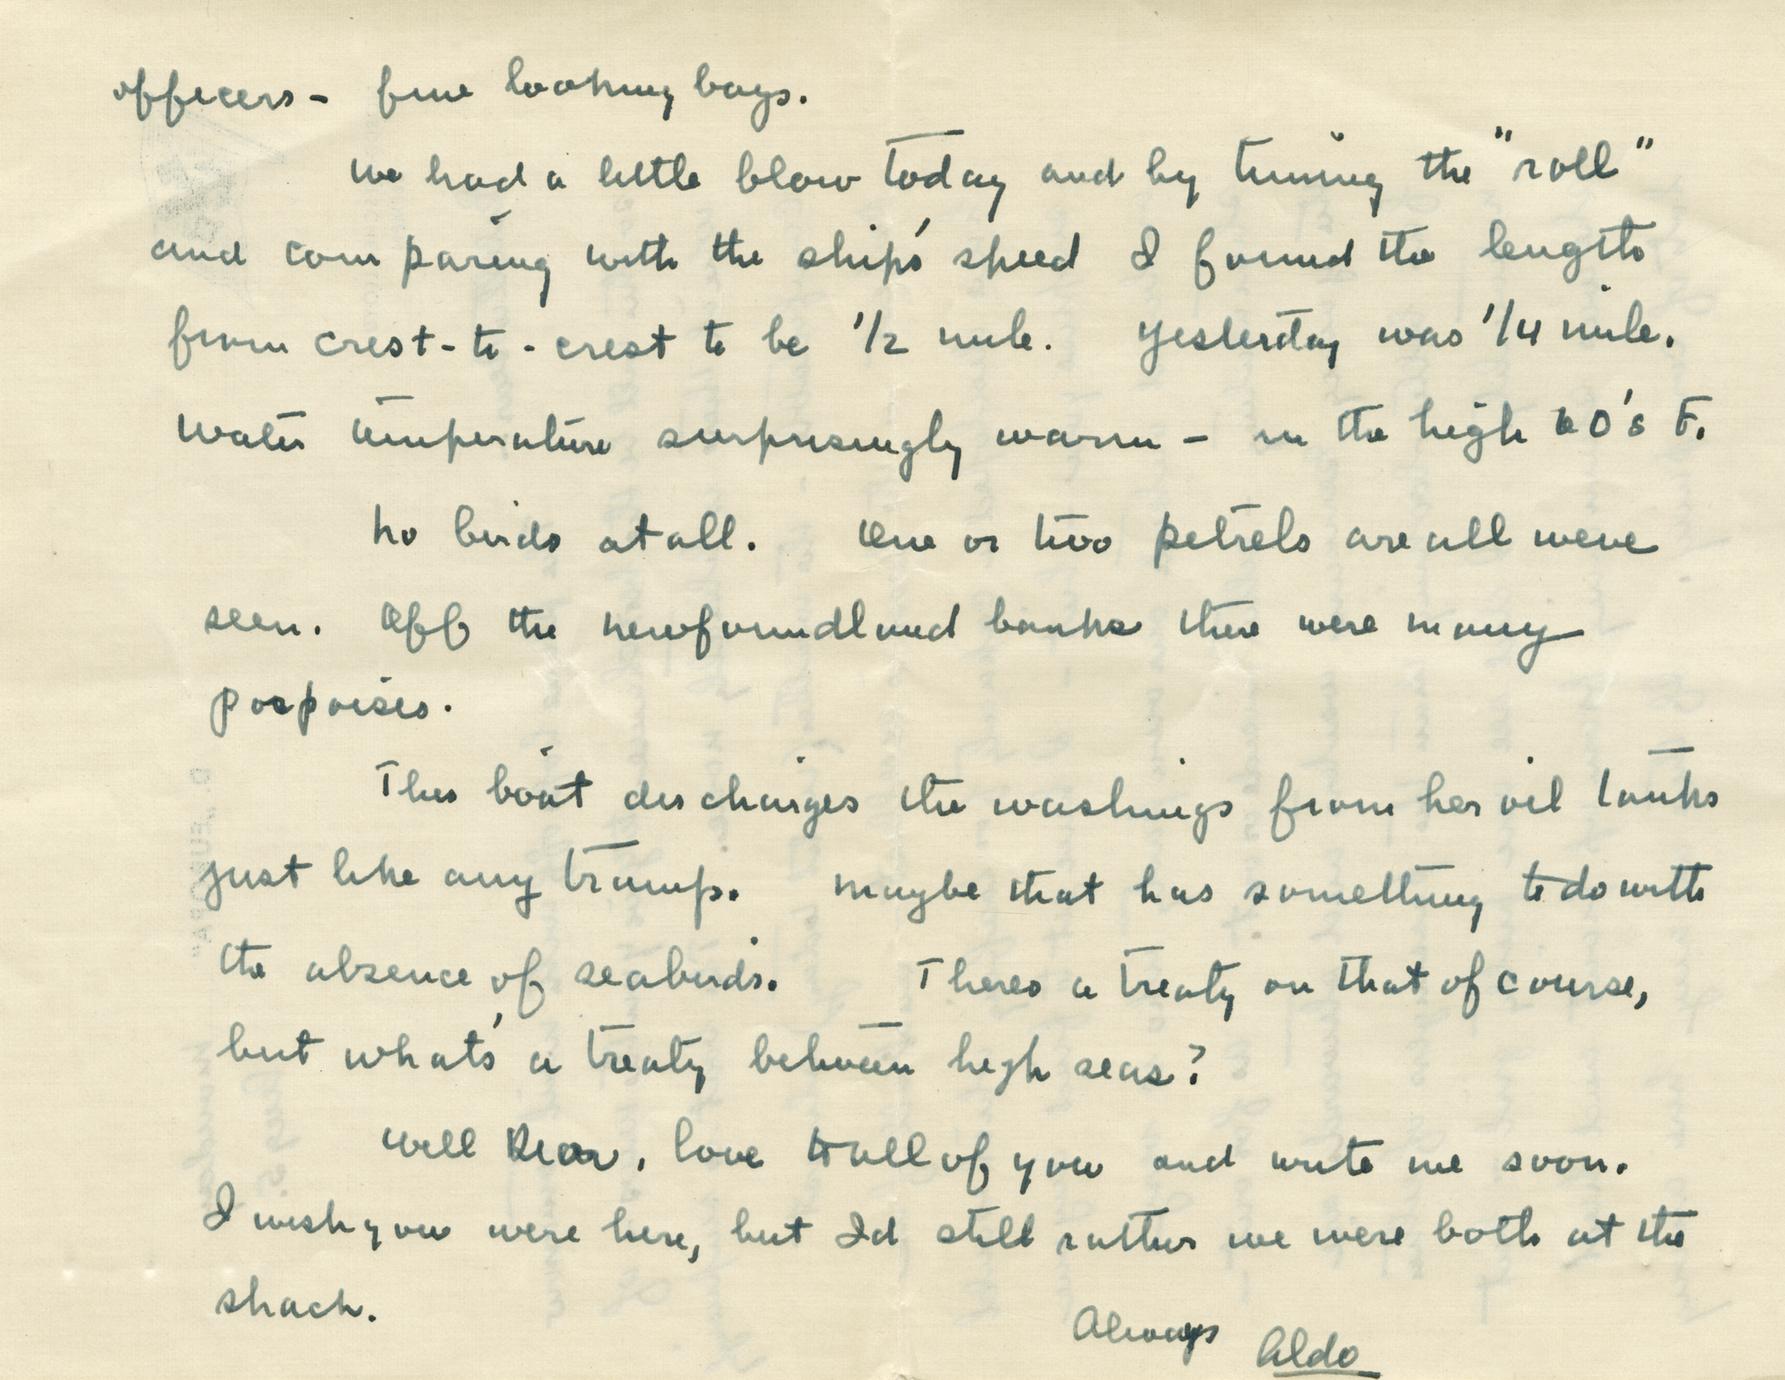 officers - fine looking boys.
We had a little blow today and by timing the "roll"
and comparing with the ship's speed I found the length
from crest-to-crest to be 1/2 mile. Yesterday was 1/4 mile.
Water temperature surprisingly warm - in the high 60's F.
No birds at all. One or two petrels are all weve
seen. Off the Newfoundland banks there were many
porpoises.
This boat discharges the washings from her oil tanks
just like any tramp. Maybe that has something to do with
the absence of seabirds. Theres a treaty on that of course,
but what's a treaty between high seas?
Well Dear, love to all of you and write me soon.
I wish you were here, but Id still rather we were both at the
shack.
Always Aldo